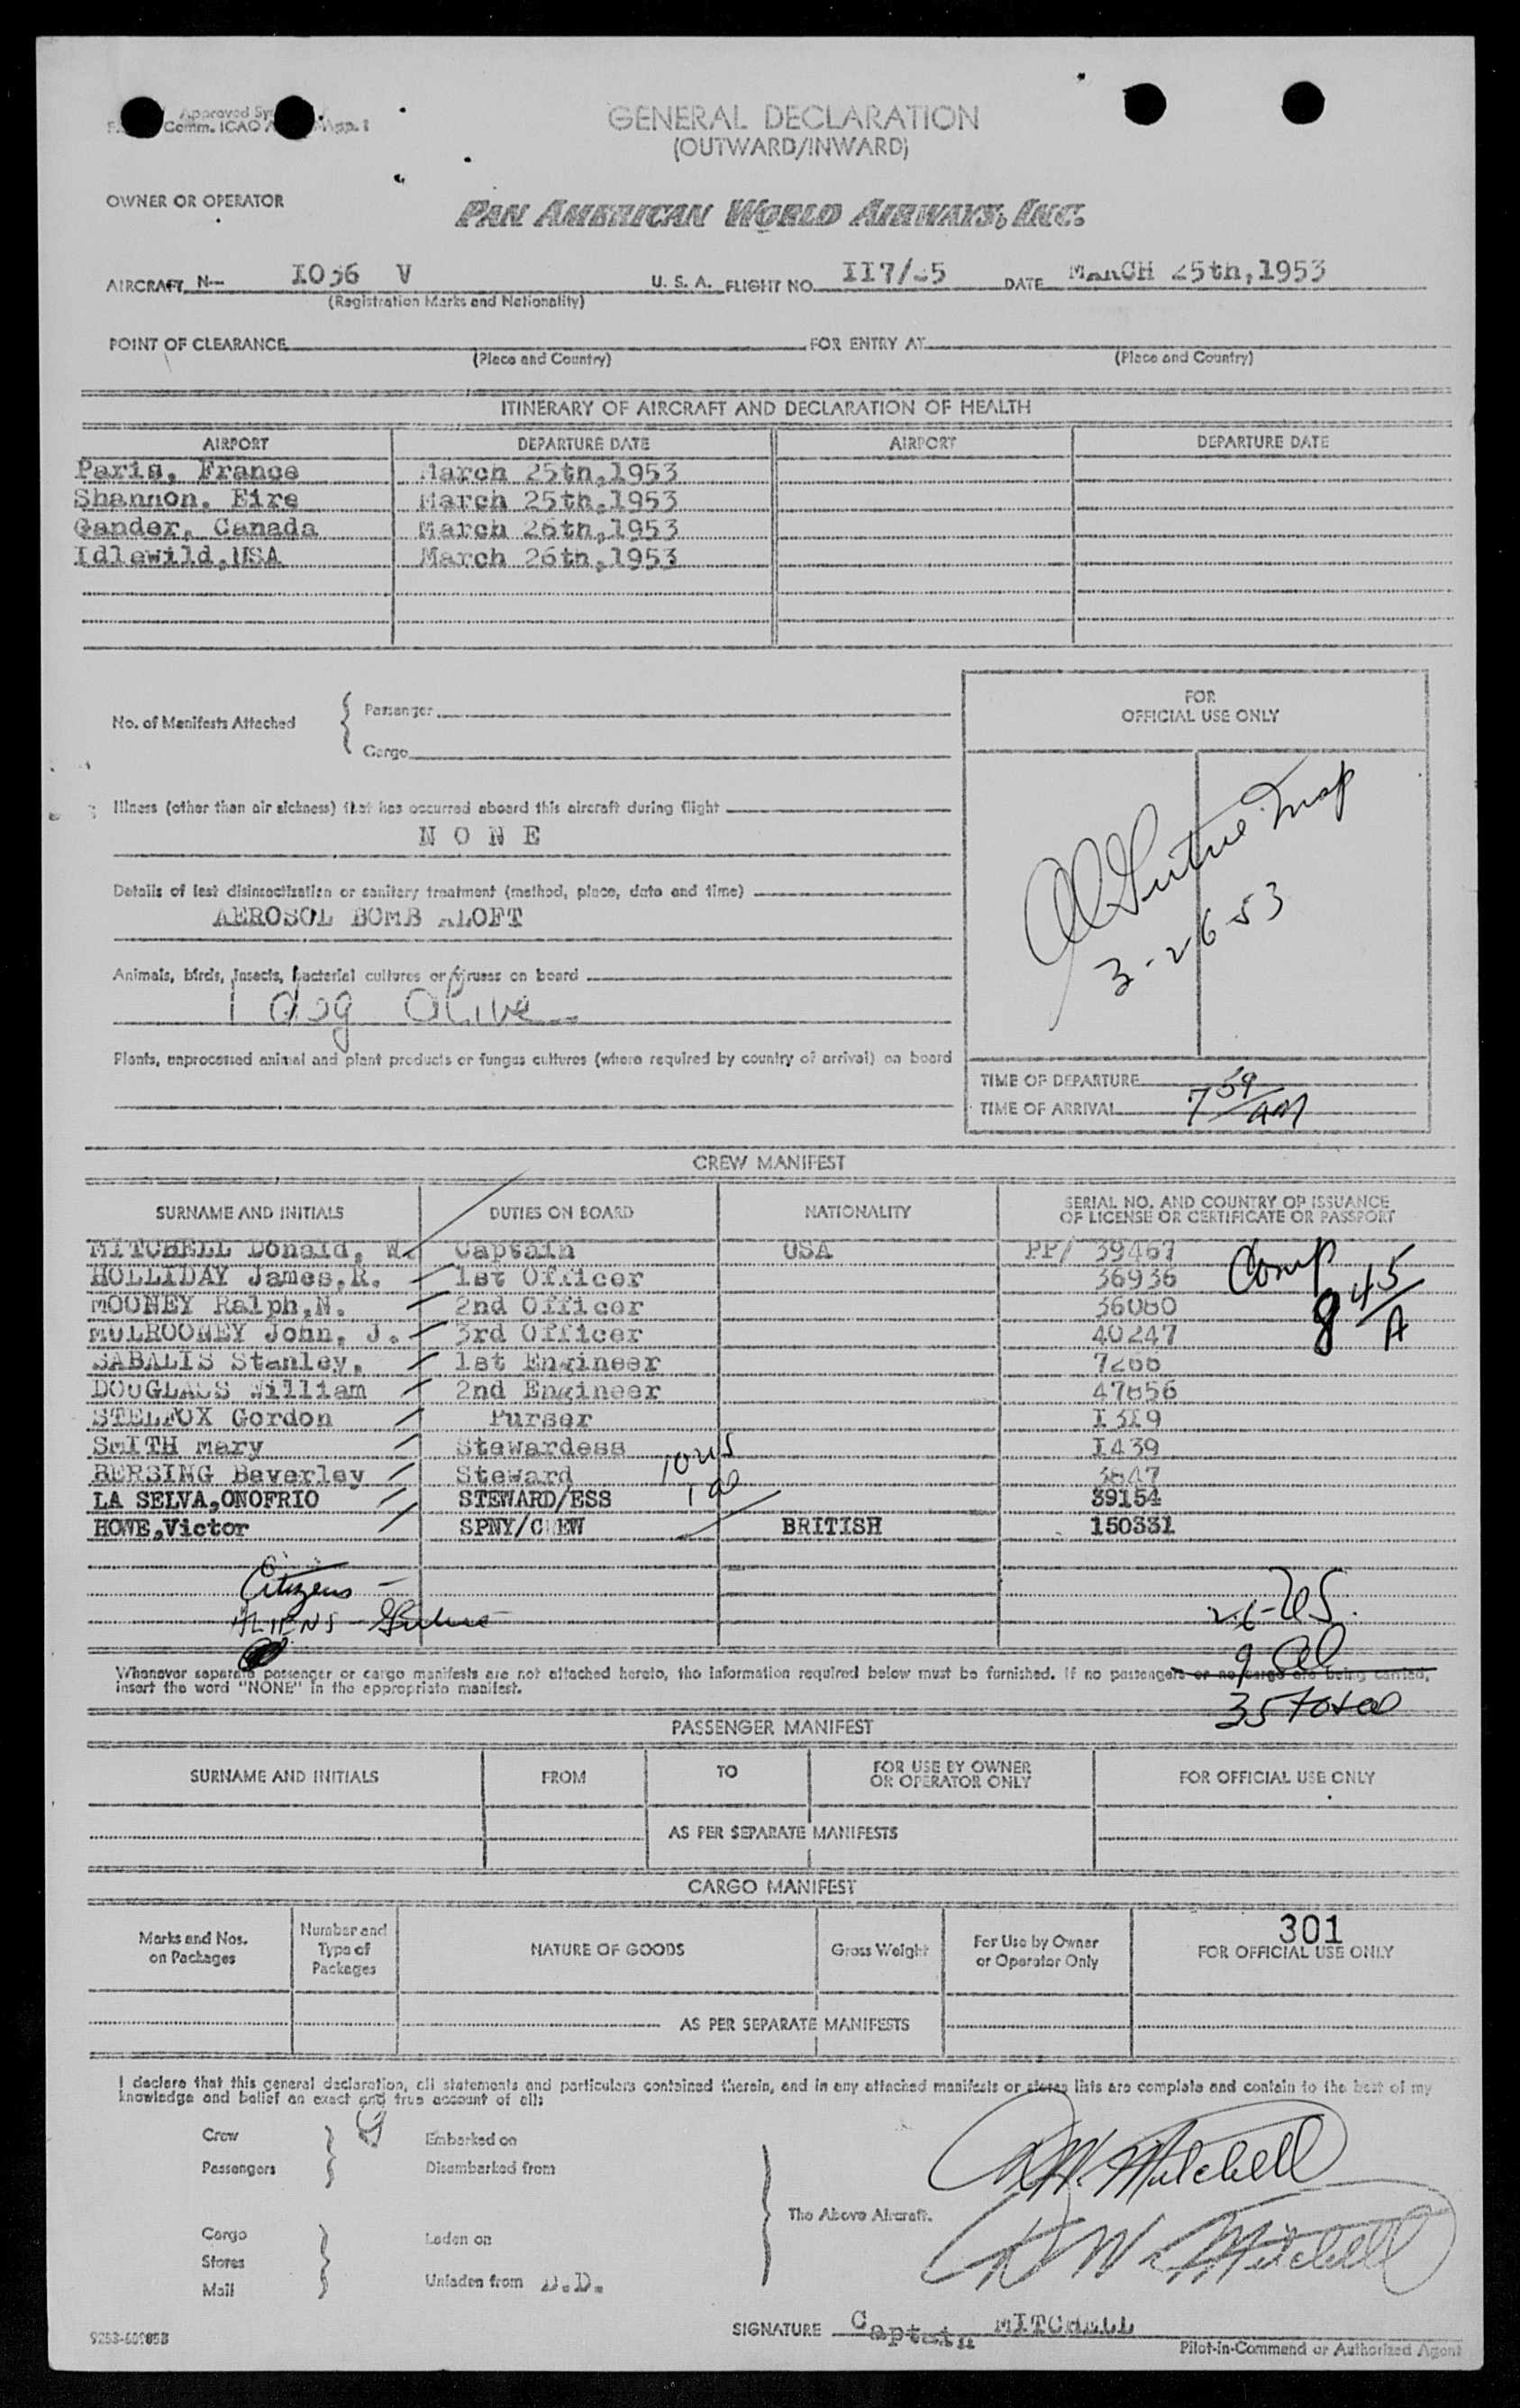 Approved
Comm. ICAO
GENERAL DECLARATION
(OUTWARD/INWARD)
OWNER OR OPERATOR
PAN AMERICAN WORLD AIRWAYS, INC.
AIRCRAFT N— 1036 V U. S. A. FLIGHT NO. DATE MARCH 25th,1953
(Registration Marks and Nationality)
POINT OF CLEARANCE FOR ENTRY AT
(Place and Country) (Place and Country)
ITINERARY OF AIRCRAFT AND DECLARATION OF HEALTH
AIRPORT DEPARTURE DATE AIRPORT DEPARTURE DATE
Paris, France March 25th,1953
Shannon, Eire March 25th,1953
Gander, Canada March 26th,1953
Idlewild,USA March 26th,1953
FOR
OFFICIAL USE ONLY
No. of Manifests Attached
Passenger
Cargo
Illness (other than air sickness) that has occurred aboard this aircraft during flight
N O N E
Details of last disinsectisation or sanitary treatment (method, place, date and time)
AEROSOL BOMB ALOFT
3-26-53
Animals, birds, insects, bacterial cultures or viruses on board
1 dog alive
Plants, unprocessed animal and plant products or fungus cultures (where required by country of arrival) on board
TIME OF DEPARTURE
TIME OF ARRIVAL 7 39/AM
CREW MANIFEST
SURNAME AND INITIALS DUTIES ON BOARD NATIONALITY SERIAL NO. AND COUNTRY OF ISSUANCE
OF LICENSE OR CERTIFICATE OR PASSPORT
MITCHELL Donald, W. Captain USA PP/ 39467
HOLLIDAY James,R. 1st Officer 36936 Comp
MOONEY Ralph,N. 2nd Officer 36080 8 45/A
MULROONEY John, J. 3rd Officer 40247
SABALIS Stanley, 1st Engineer 7266
DOUGLASS William 2nd Engineer 47856
STELFOX Gordon Purser 1319
SMITH Mary Stewardess 1439
BERSING Beverley Steward 3847
LA SELVA,ONOFRIO STEWARD/ESS 39154
HOWE,Victor SPNY/CREW BRITISH 150331
10 US
1 al
Citizens —
ALIENS -
26-US.
9-al
35 total
Whenever separate passenger or cargo manifests are not attached hereto, the information required below must be furnished. If no passengers or no cargo are being carried,
insert the word "NONE" in the appropriate manifest.
PASSENGER MANIFEST
SURNAME AND INITIALS FROM TO FOR USE BY OWNER
OR OPERATOR ONLY FOR OFFICIAL USE ONLY
AS PER SEPARATE MANIFESTS
CARGO MANIFEST
301
Marks and Nos.
on Packages
Number and
Type of
Packages
NATURE OF GOODS Gross Weight
For Use by Owner
or Operator Only
FOR OFFICIAL USE ONLY
AS PER SEPARATE MANIFESTS
I declare that this general declaration, all statements and particulars contained therein, and in any attached manifests or stores lists are complete and contain to the best of my
knowledge and belief an exact and true account of all:
Crew Embarked on
Passengers Disembarked from
DW. Mitchell
The Above Aircraft.
DW Mitchell
Cargo Laden on
Stores
Mail Unladen from D.D.
SIGNATURE Captain MITCHELL
Pilot-in-Command or Authorized Agent